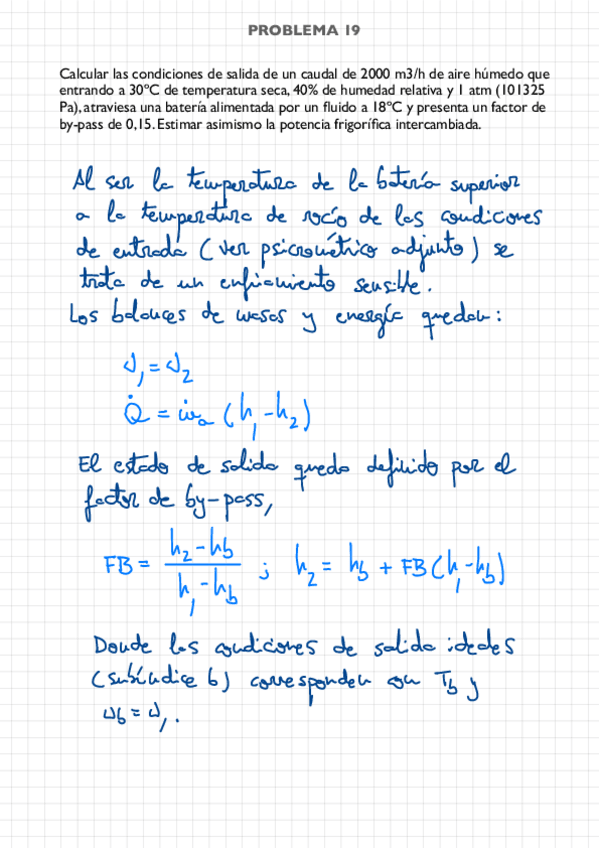 PROBLEMA 19
Calcular las condiciones de salida de un caudal de 2000 m3/h de aire húmedo que
entrando a 30ºC de temperatura seca, 40% de humedad relativa y 1 atm (101325
Pa), atraviesa una batería alimentada por un fluido a 18ºC y presenta un factor de
by-pass de 0,15. Estimar asimismo la potencia frigorífica intercambiada.
Al ser la temperatura de la batería superior
a la temperatura de rocío de las condiciones
de entrada (ver psicrométrico adjunto) se
trata de un enfriamiento sensible.
Los balances de masas y energía quedan:
ω₁ = ω₂
Q̇ = ṁₐ (h₁ - h₂)
El estado de salida queda definido por el
factor de by-pass,
FB = (h₂ - h_b) / (h₁ - h_b) ; h₂ = h_b + FB (h₁ - h_b)
Donde las condiciones de salida ideales
(subíndice b) corresponden con T_b y
ω_b = ω₁.